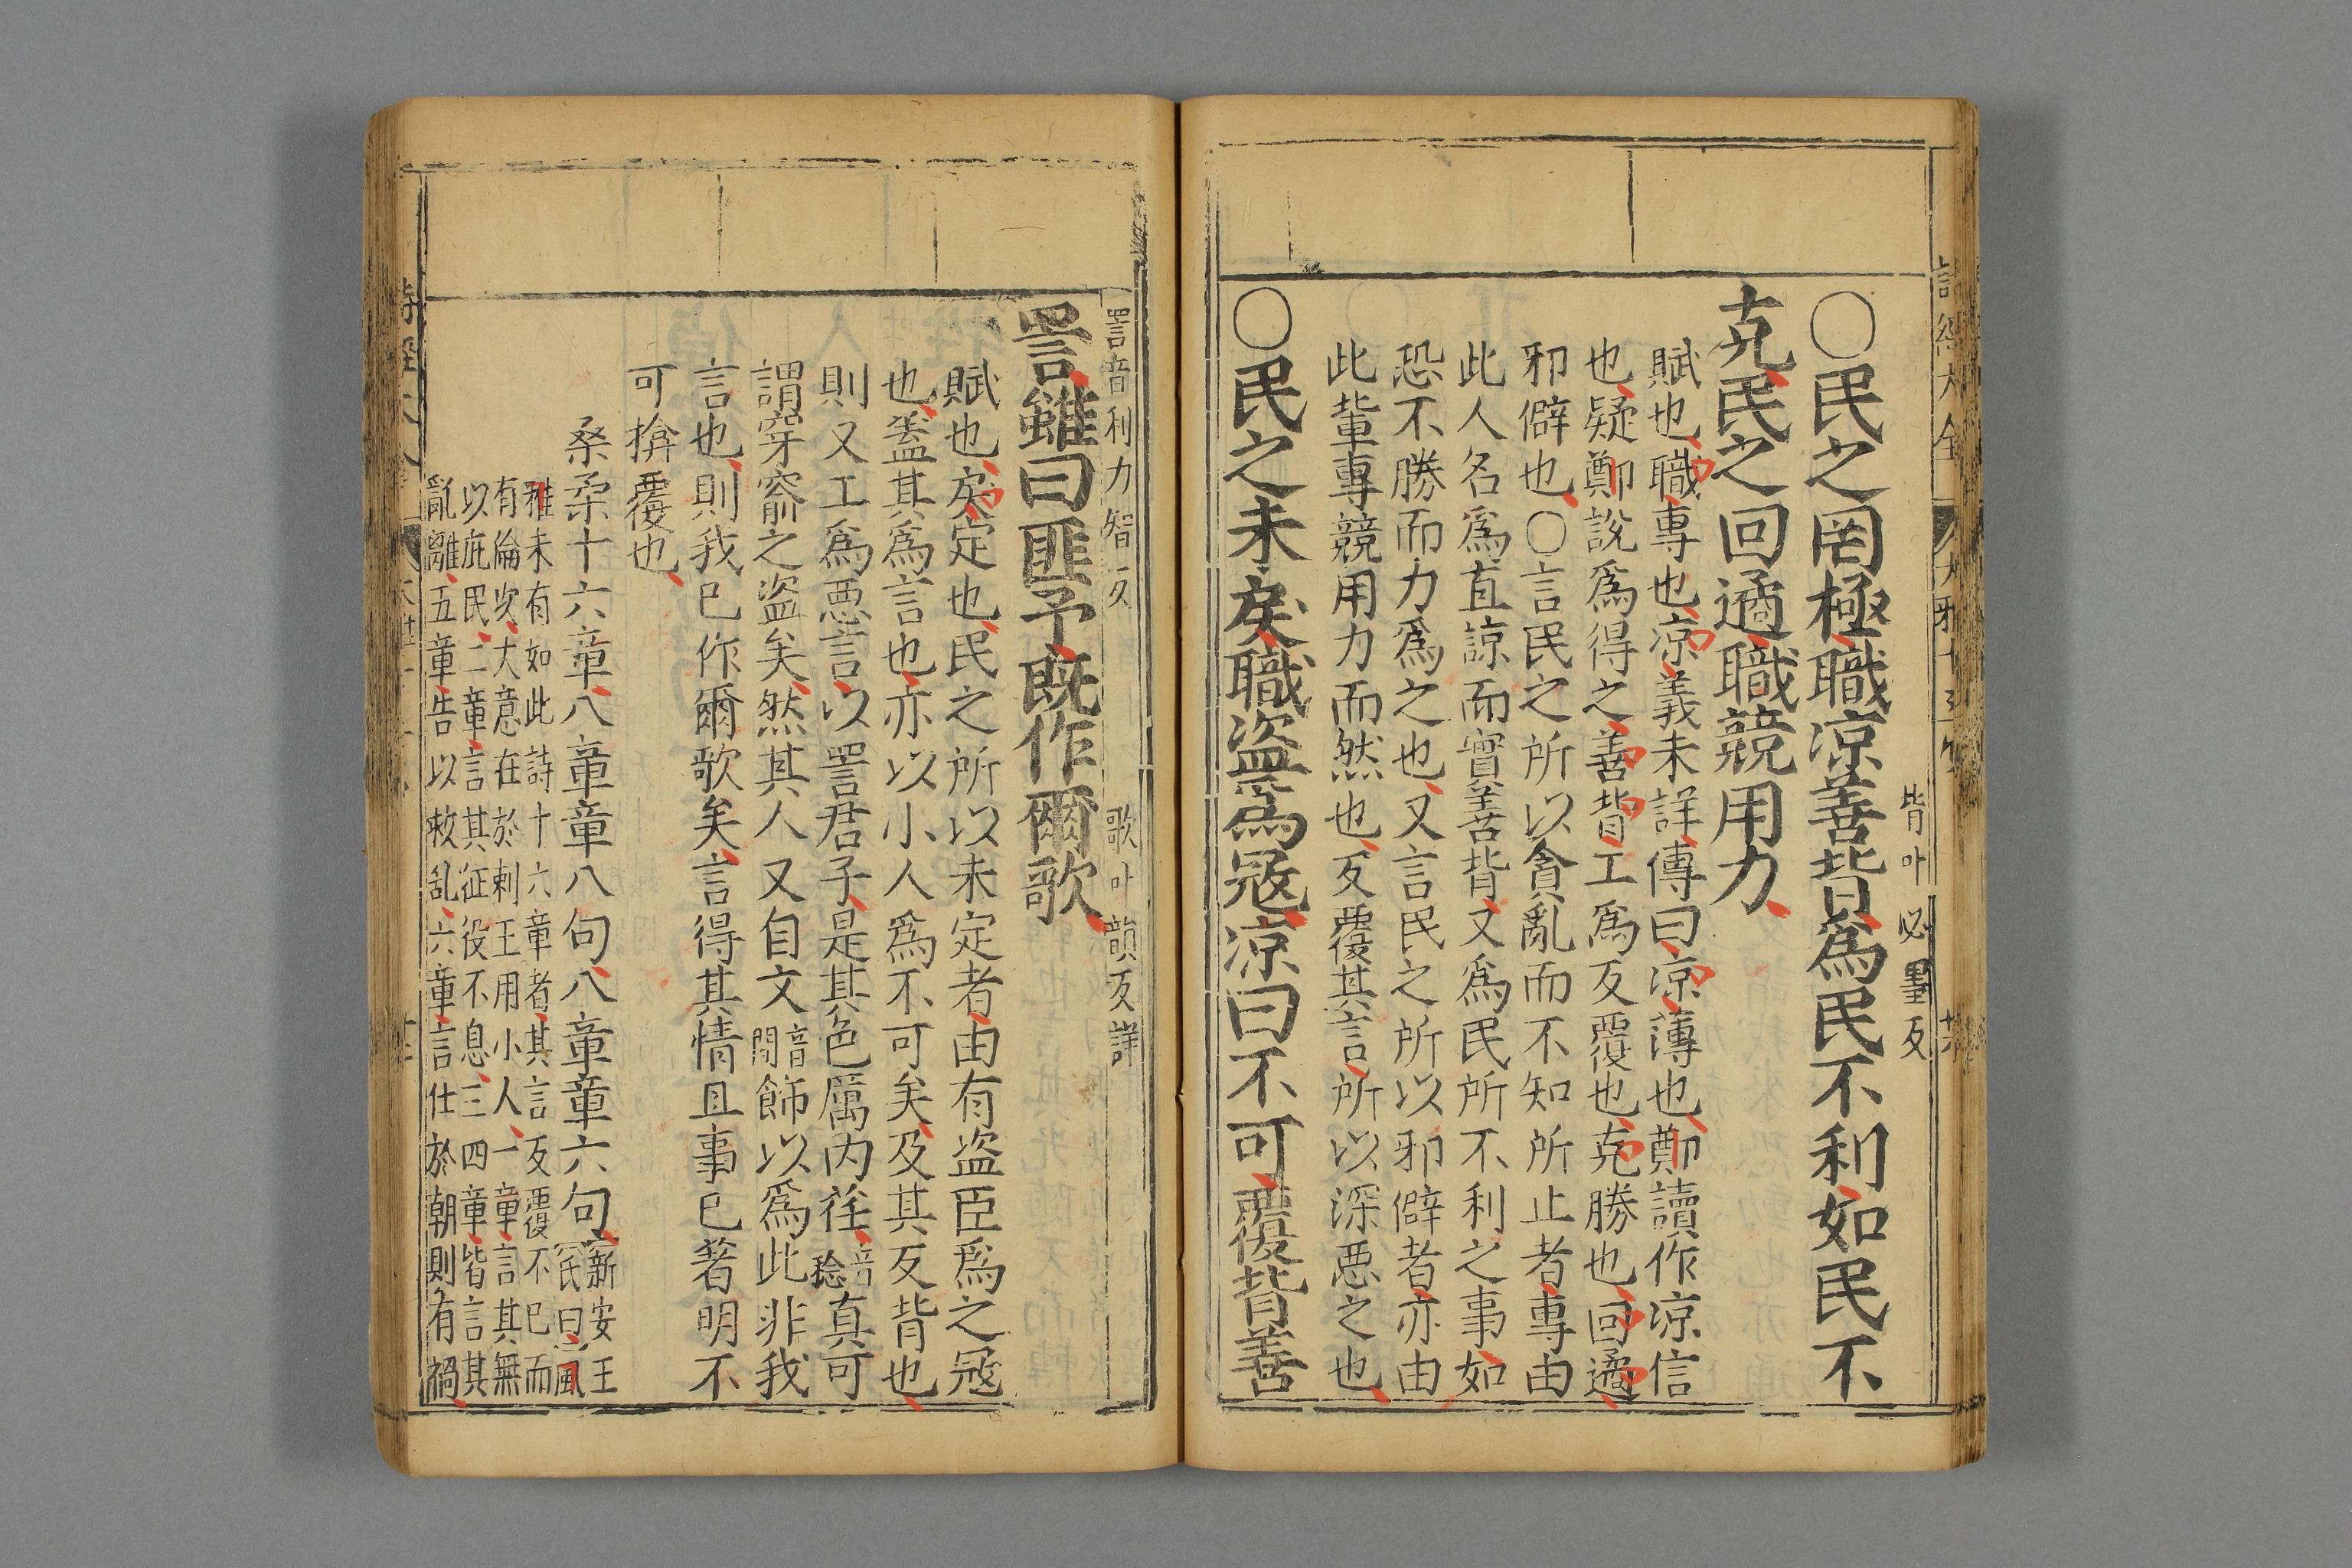 背叶必墨反
〇民之罔極職凉善背爲民不利如民不
克民之回遹職競用力
賦也職專也凉義未詳傳曰凉薄也鄭讀作凉信
也疑鄭說爲得之善背工爲反覆也克勝也回遹
邪僻也〇言民之所以貪亂而不知所止者專由
此人名爲直諒而實善背又爲民所不利之事如
恐不勝而力爲之也又言民之所以邪僻者亦由
此輩專競用力而然也反覆其言所以深惡之也
〇民之未戾職盜爲寇凉曰不可覆背善
詈音利力智反 歌叶韻反詳
詈雖曰匪予既作爾歌
賦也戾定也民之所以未定者由有盜臣爲之寇
也蓋其爲言也亦以小人爲不可矣及其反背也
則又工爲惡言以詈君子是其色厲内荏音稔真可
謂穿窬之盜矣然其人又自文音問飾以爲此非我
言也則我已作爾歌矣言得其情且事已著明不
可揜覆也
桑柔十六章八章章八句八章章六句新安王氏曰風
雅未有如此詩十六章者其言反覆不已而
有倫次大意在於刺王用小人一章言其無
以庇民二章言其征役不息三四章皆言其
亂離五章告以救乱六章言仕於朝則有禍